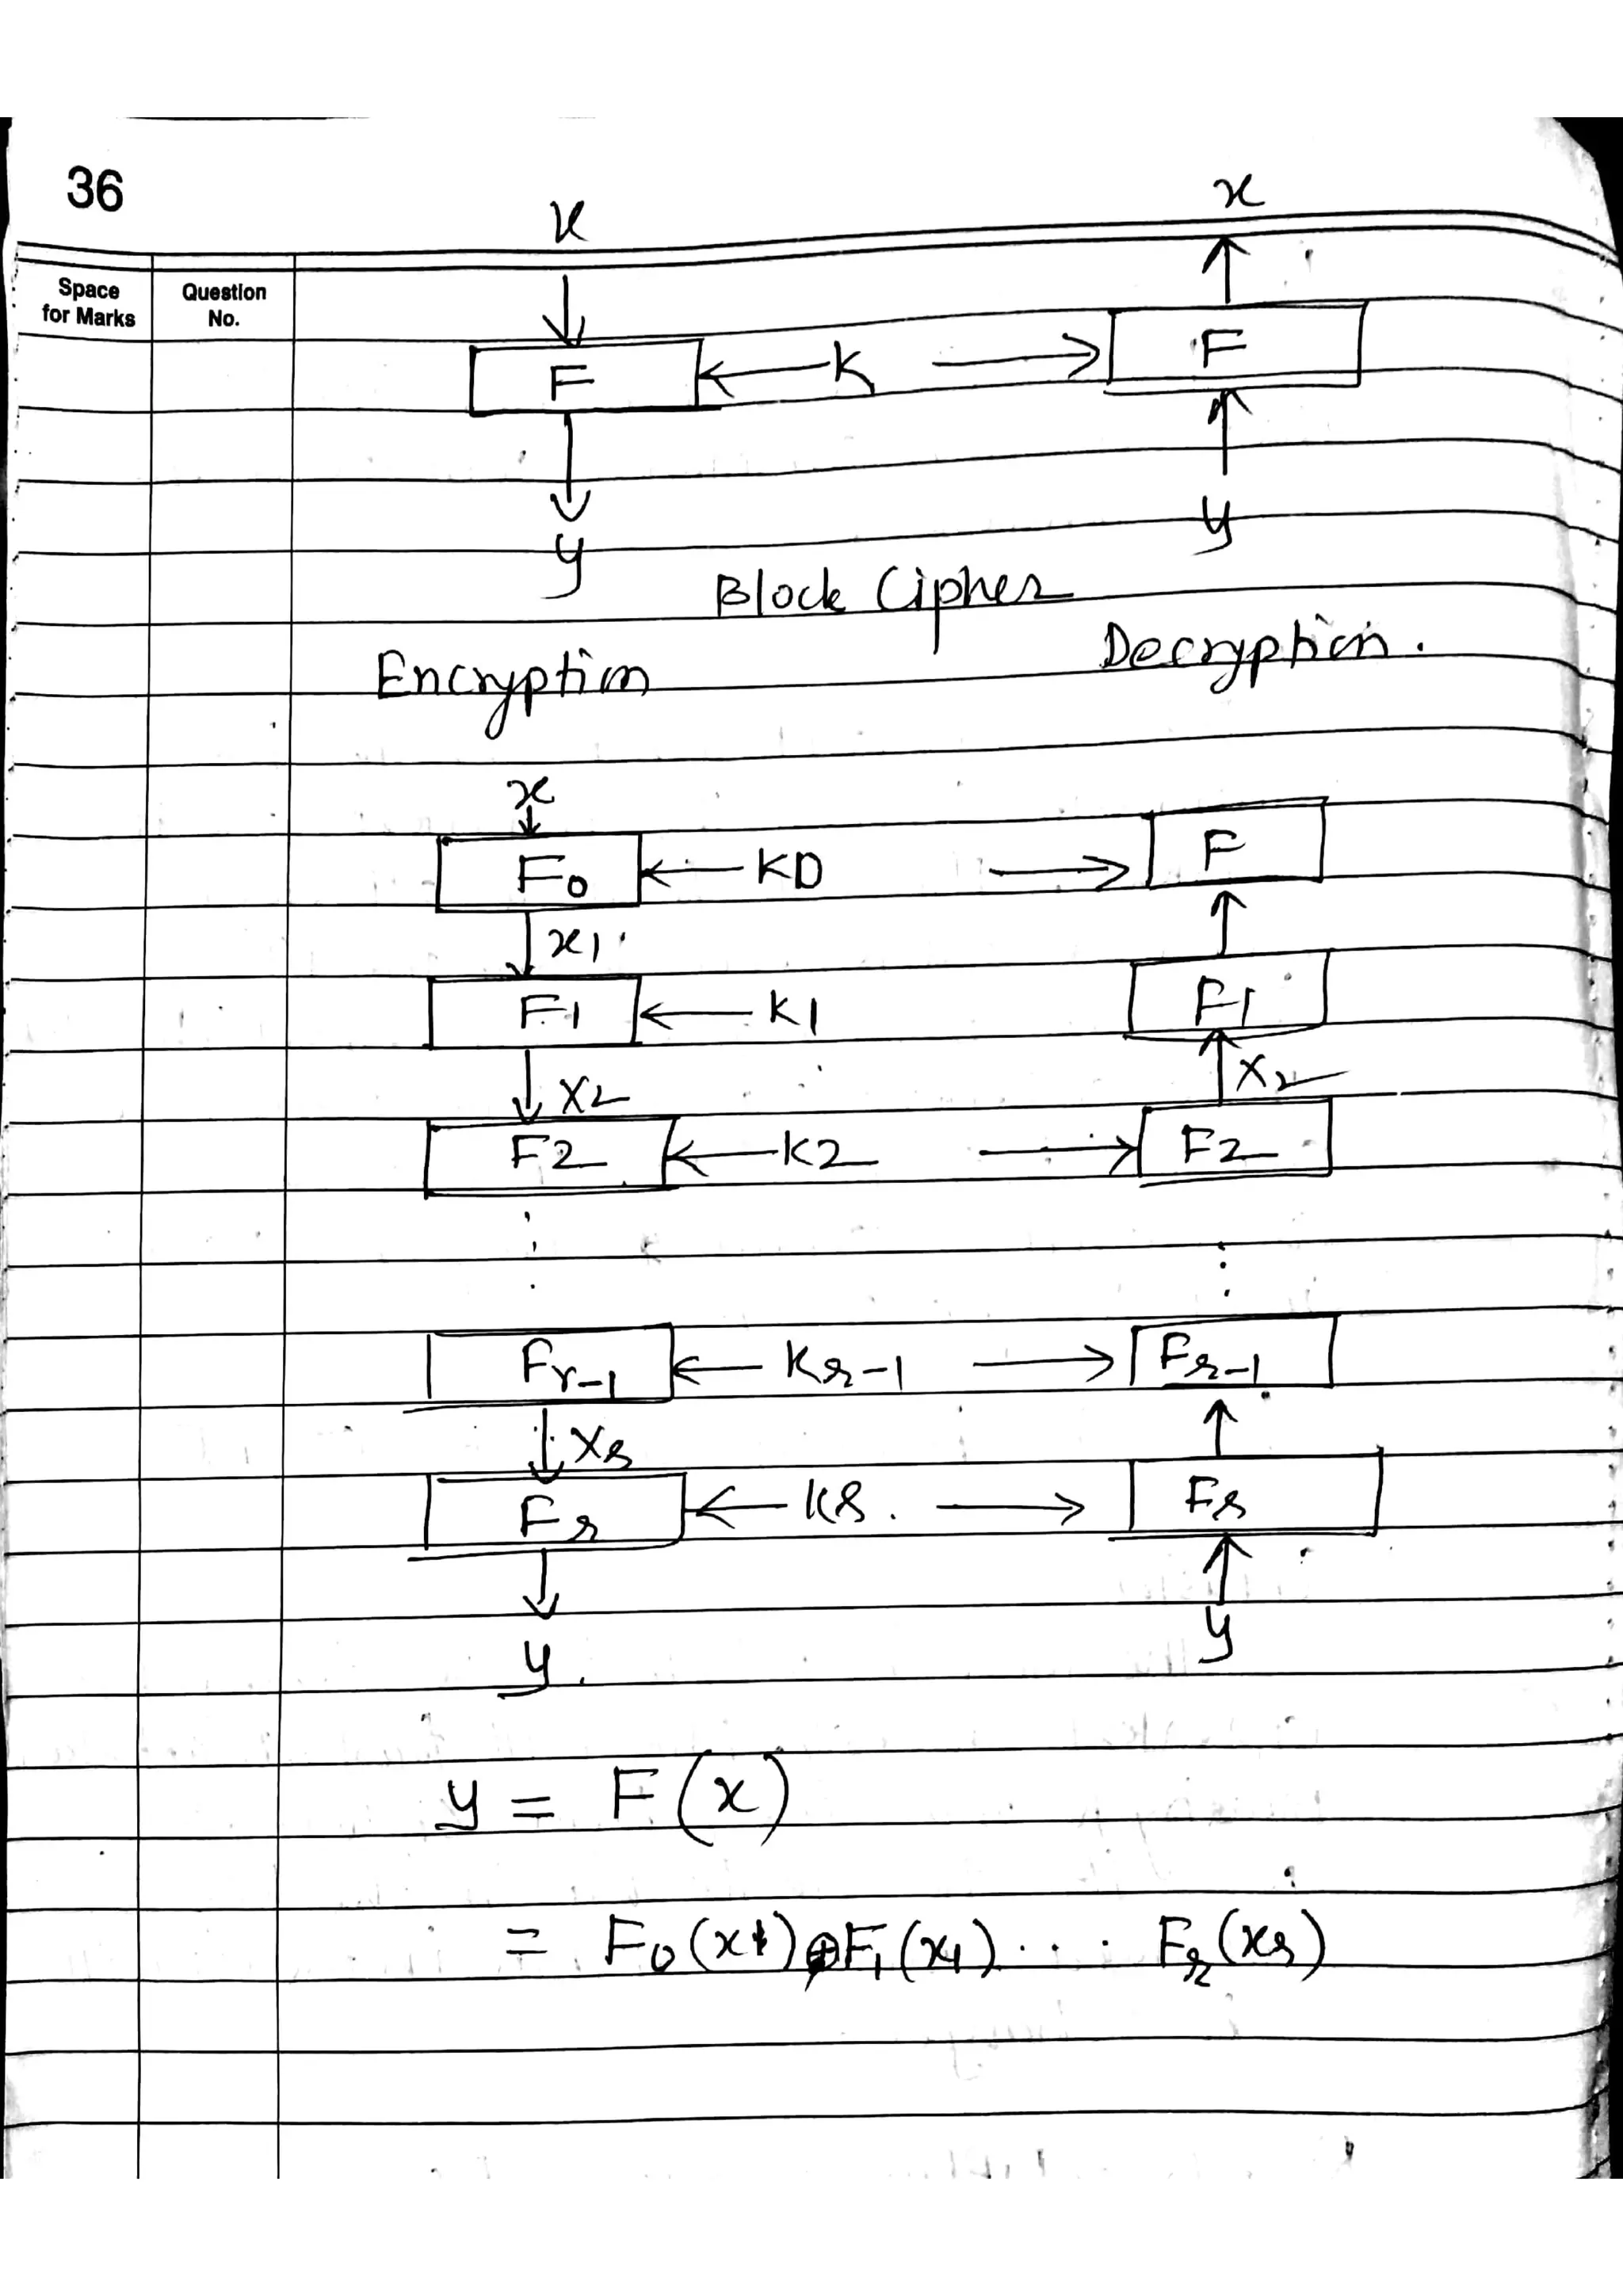 36
x x
Space for Marks
Question No.
F ← K → F
y y
Block Cipher
Encryption Decryption.
x
F0 ← K0 → F
x1
F1 ← K1 F1
x2 x2
F2 ← K2 → F2
Fr-1 ← Kr-1 → Fr-1
xr
Fr ← Kr. → Fr
y. y
y = F(x)
= F0(x) ⊕ F1(x1) .... Fr(xr)